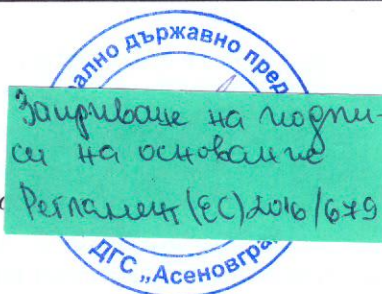 ално държавно пред
Закриване на подпи-
си на основание
Регламент (ЕС) 2016/679
ДГС „Асеновгра